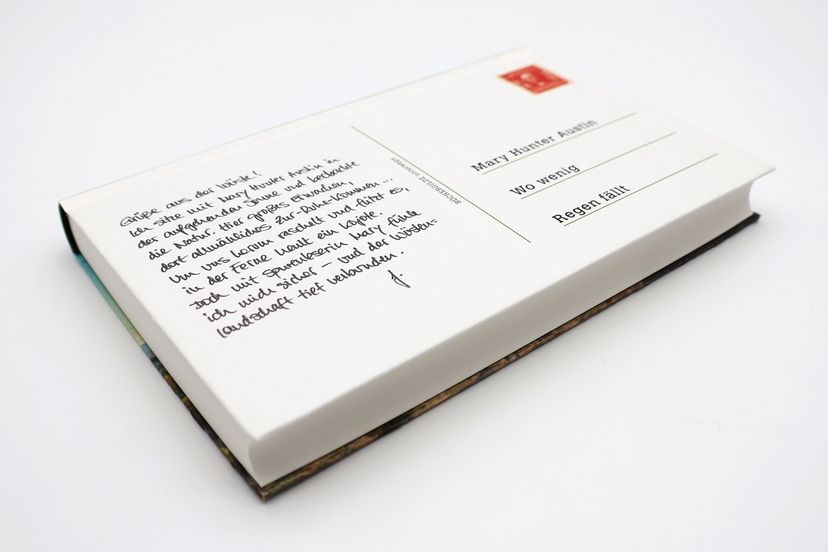 Grüße aus der Wüste!
Ich sitze mit Mary Hunter Austin in
der aufgehenden Sonne und beobachte
die Natur. Hier großes Erwachen,
dort allmähliches Zur-Ruhe-Kommen...
Um uns herum raschelt und flitzt es,
in der Ferne heult ein Kojote.
Doch mit Spurenleserin Mary fühle
ich mich sicher – und der Wüsten-
landschaft tief verbunden.
J.
BÜCHERGILDE unterwegs
Mary Hunter Austin
Wo wenig
Regen fällt